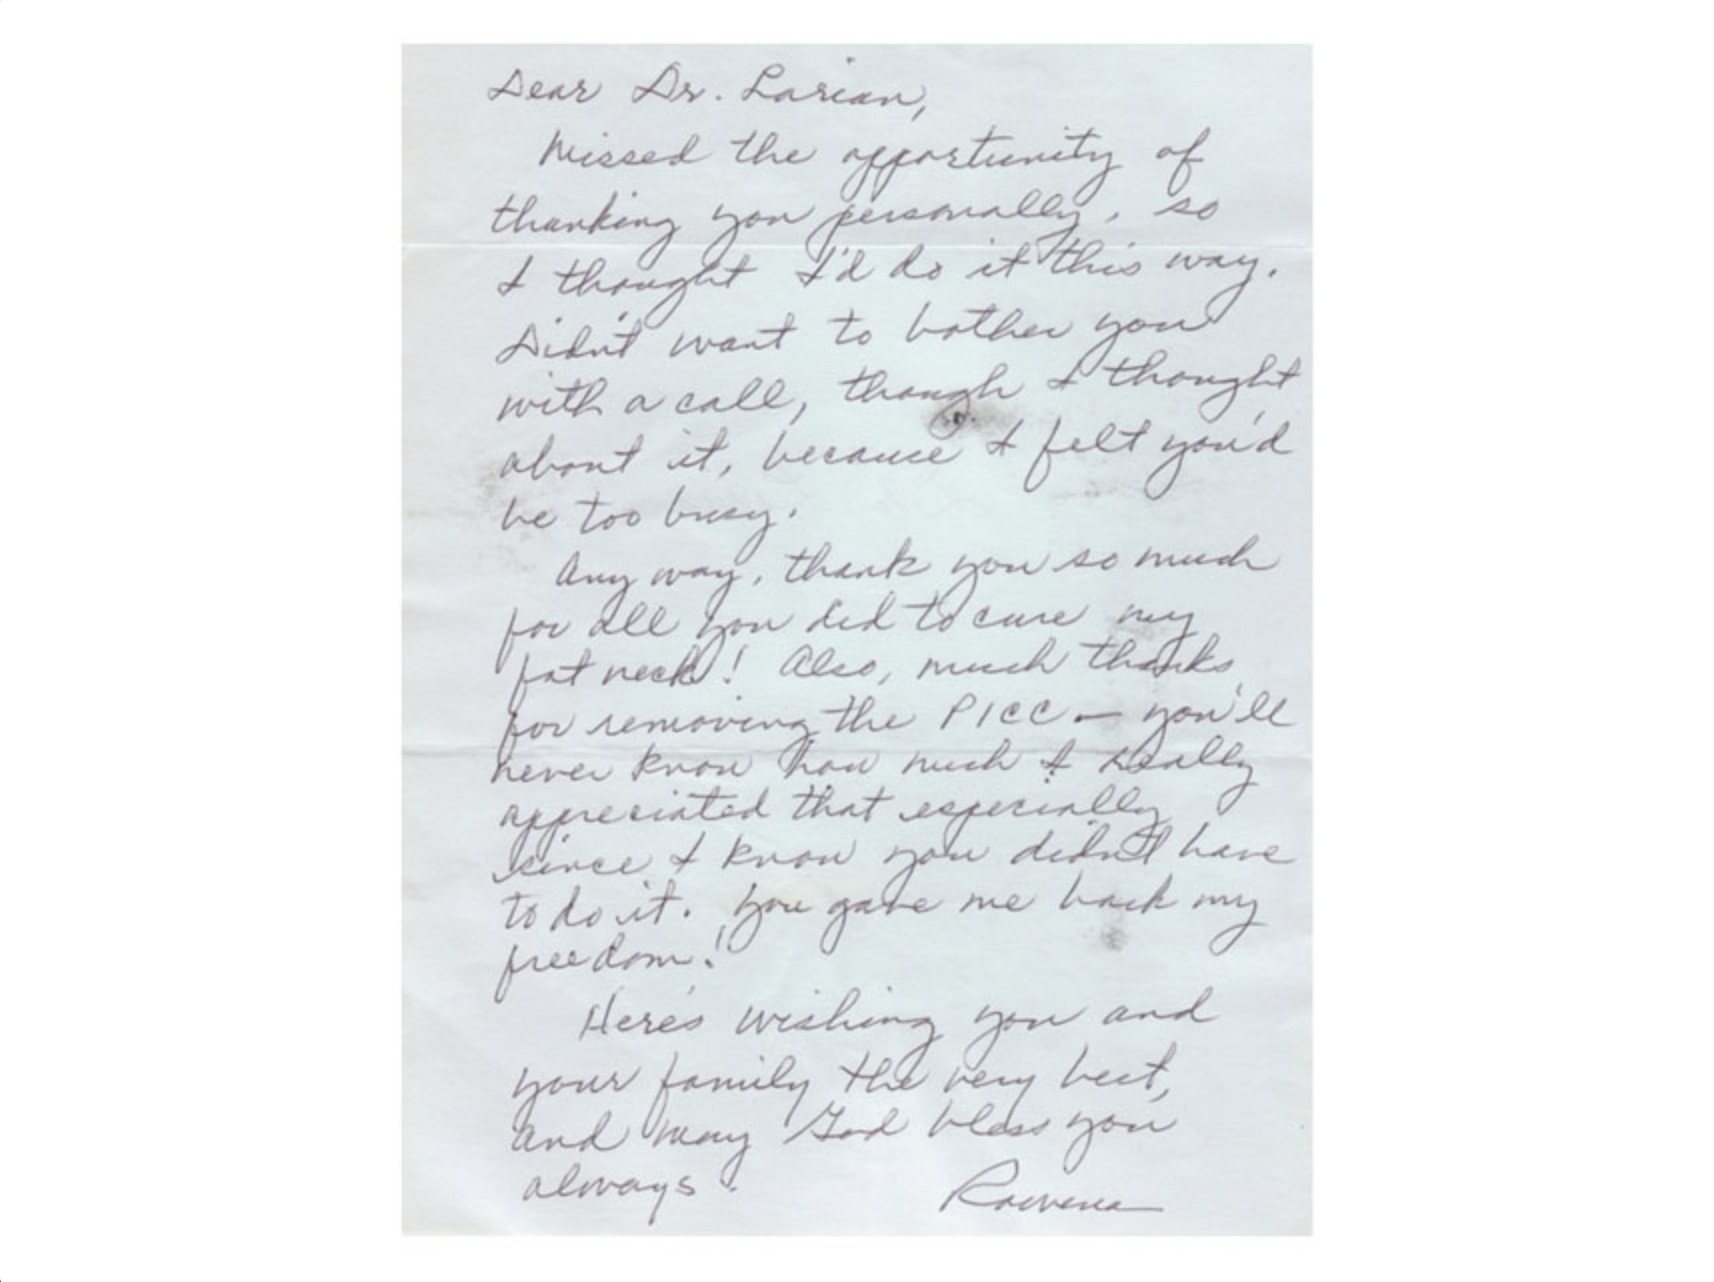 Dear Dr. Larian,
Missed the opportunity of
thanking you personally, so
I thought I'd do it this way.
Didn't want to bother you
with a call, though I thought
about it, because I felt you'd
be too busy.
Any way, thank you so much
for all you did to cure my
fat neck! Also, much thanks
for removing the PICC — you'll
never know how much I really
appreciated that especially
since I know you didn't have
to do it. You gave me back my
freedom!
Here's wishing you and
your family the very best,
and may God bless you
always.
Rowena